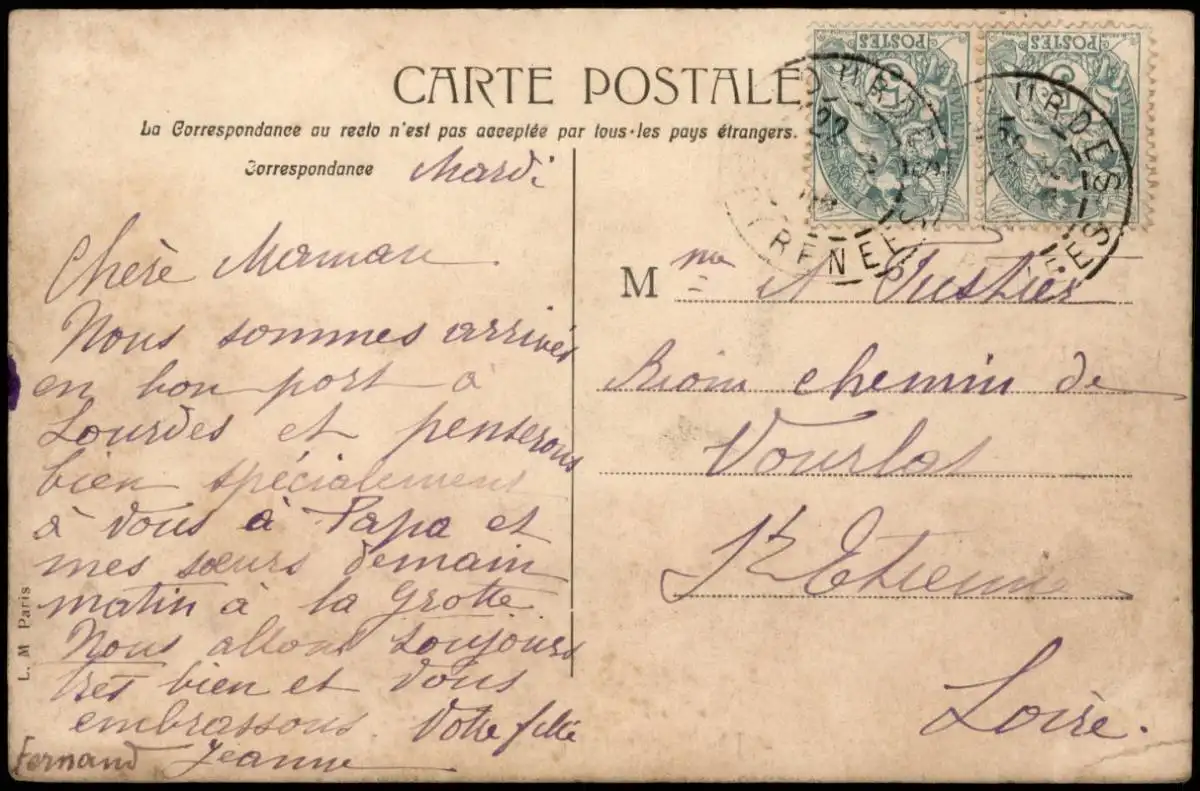 CARTE POSTALE
La Correspondance au recto n'est pas acceptée par tous·les pays étrangers.
Correspondance
Mardi
Chère Maman
Nous sommes arrivés
en bon port à
Lourdes et penserons
bien spécialement
à vous à Papa et
mes sœurs demain
matin à la Grotte.
Nous allons toujours
très bien et vous
embrassons. Votre fille
Fernand Jeanne
L. M Paris
POSTES
POSTES
LOURDES
M me A
chemin de
St Etienne
Loire.